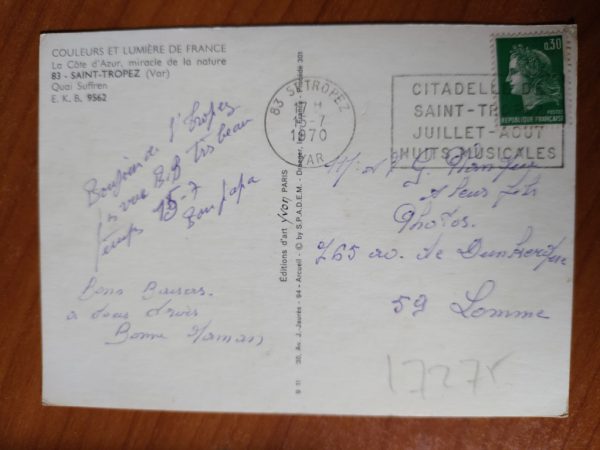 COULEURS ET LUMIÈRE DE FRANCE
La Côte d'Azur, miracle de la nature
83 - SAINT-TROPEZ (Var)
Quai Suffren
E. K. B. 9562
Bonjour de St tropez
vu B.B très beau
temps 15-7
Bon papa
Bons Baisers
a tous trois
Bonne Maman
Éditions d'art Yvon PARIS
30, Av. J. Jaurès - 94 - Arcueil - © by S.P.A.D.E.M.
83 ST TROPEZ
15-7
1970
VAR
CITADELLE DE
SAINT-TR
JUILLET-AOUT
NUITS MUSICALES
0,30
POSTES
RÉPUBLIQUE FRANÇAISE
G.
Photos.
765 av. de Dunkerque
59 Lomme